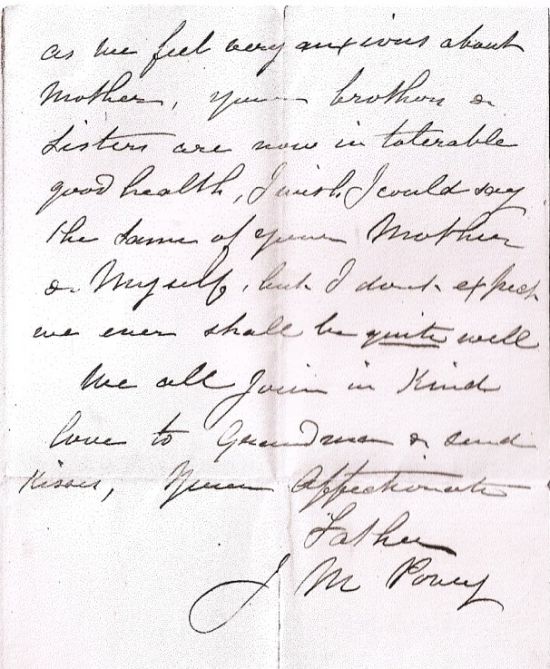 as we feel very anxious about
Mother, your brothers &
Sisters are now in tolerable
good health, I wish I could say
the same of your Mother
or Myself, but I dont expect
we ever shall be quite well
We all Join in Kind
love to Grandma & send
Kisses, Your Affectionate
Father
J M Povey